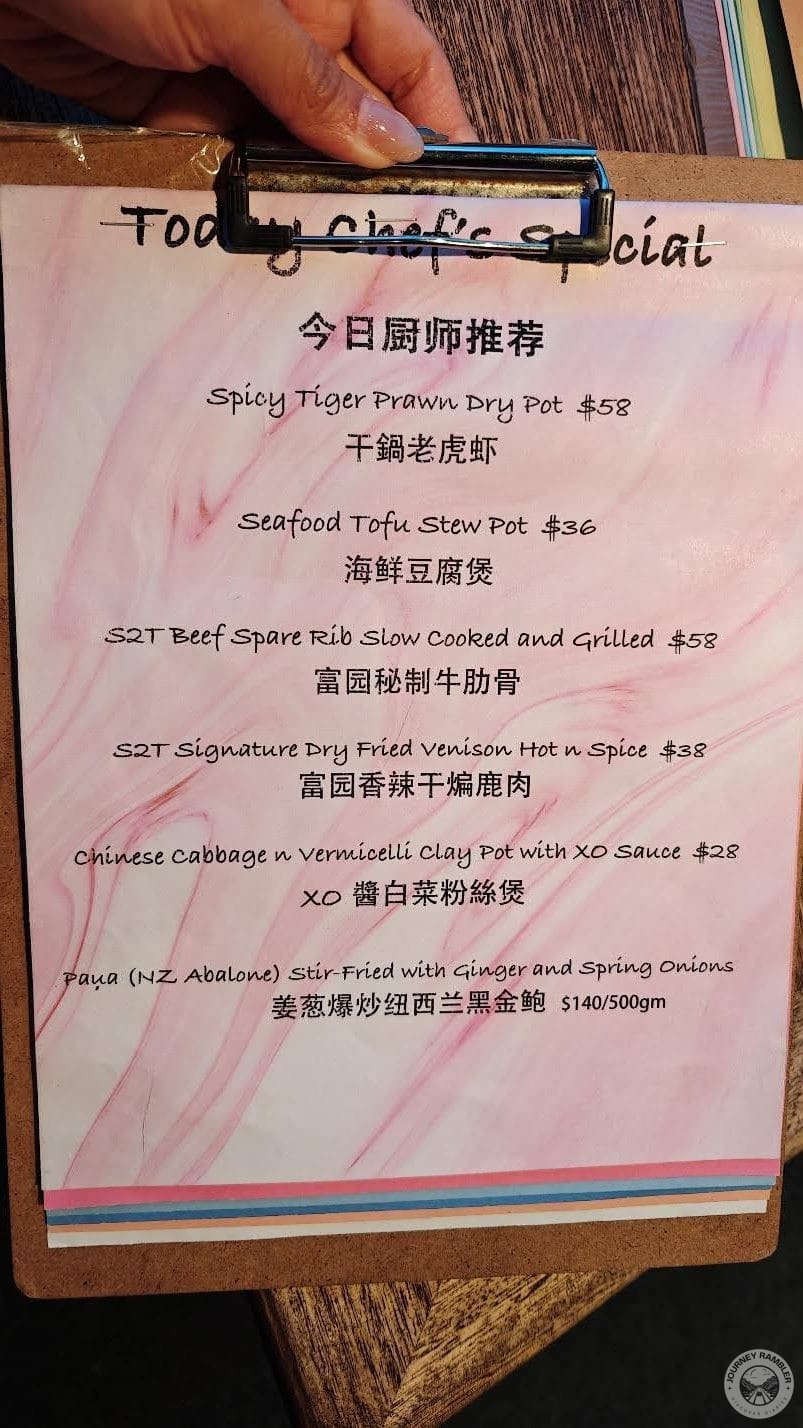 Today Chef's Special
今日厨师推荐
Spicy Tiger Prawn Dry Pot $58
干鍋老虎虾
Seafood Tofu Stew Pot $36
海鲜豆腐煲
S2T Beef Spare Rib Slow Cooked and Grilled $58
富园秘制牛肋骨
S2T Signature Dry Fried Venison Hot n Spice $38
富园香辣干煸鹿肉
Chinese Cabbage n Vermicelli Clay Pot with XO Sauce $28
XO 醬白菜粉絲煲
Paua (NZ Abalone) Stir-Fried with Ginger and Spring Onions
姜葱爆炒纽西兰黑金鲍 $140/500gm
JOURNEY RAMBLER